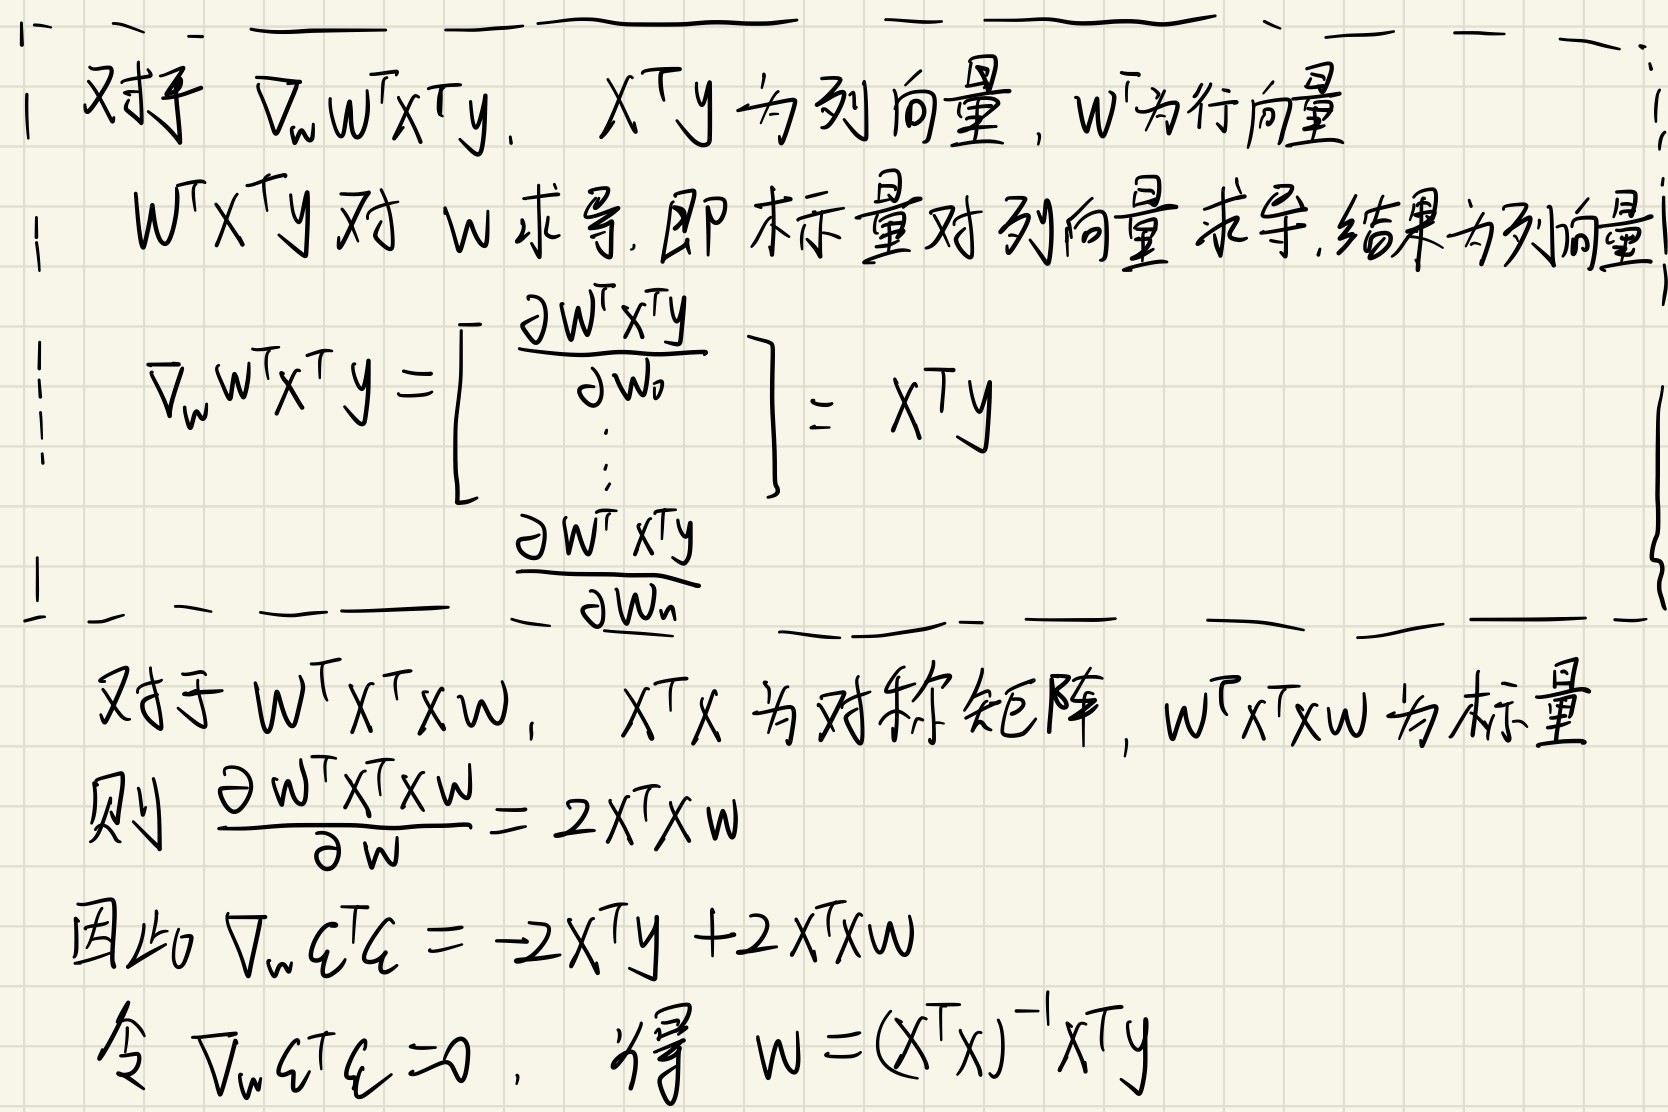 对于 ∇_w W^T X^T y, X^T y 为列向量, W^T 为行向量
W^T X^T y 对 w 求导, 即标量对列向量求导, 结果为列向量
∇_w W^T X^T y = [ ∂W^T X^T y / ∂W_0 ⋮ ∂W^T X^T y / ∂W_n ] = X^T y
对于 W^T X^T X W, X^T X 为对称矩阵, W^T X^T X W 为标量
则 ∂W^T X^T X W / ∂W = 2X^T X W
因此 ∇_w ε^T ε = -2X^T y + 2X^T X W
令 ∇_w ε^T ε = 0, 得 W = (X^T X)^{-1} X^T y